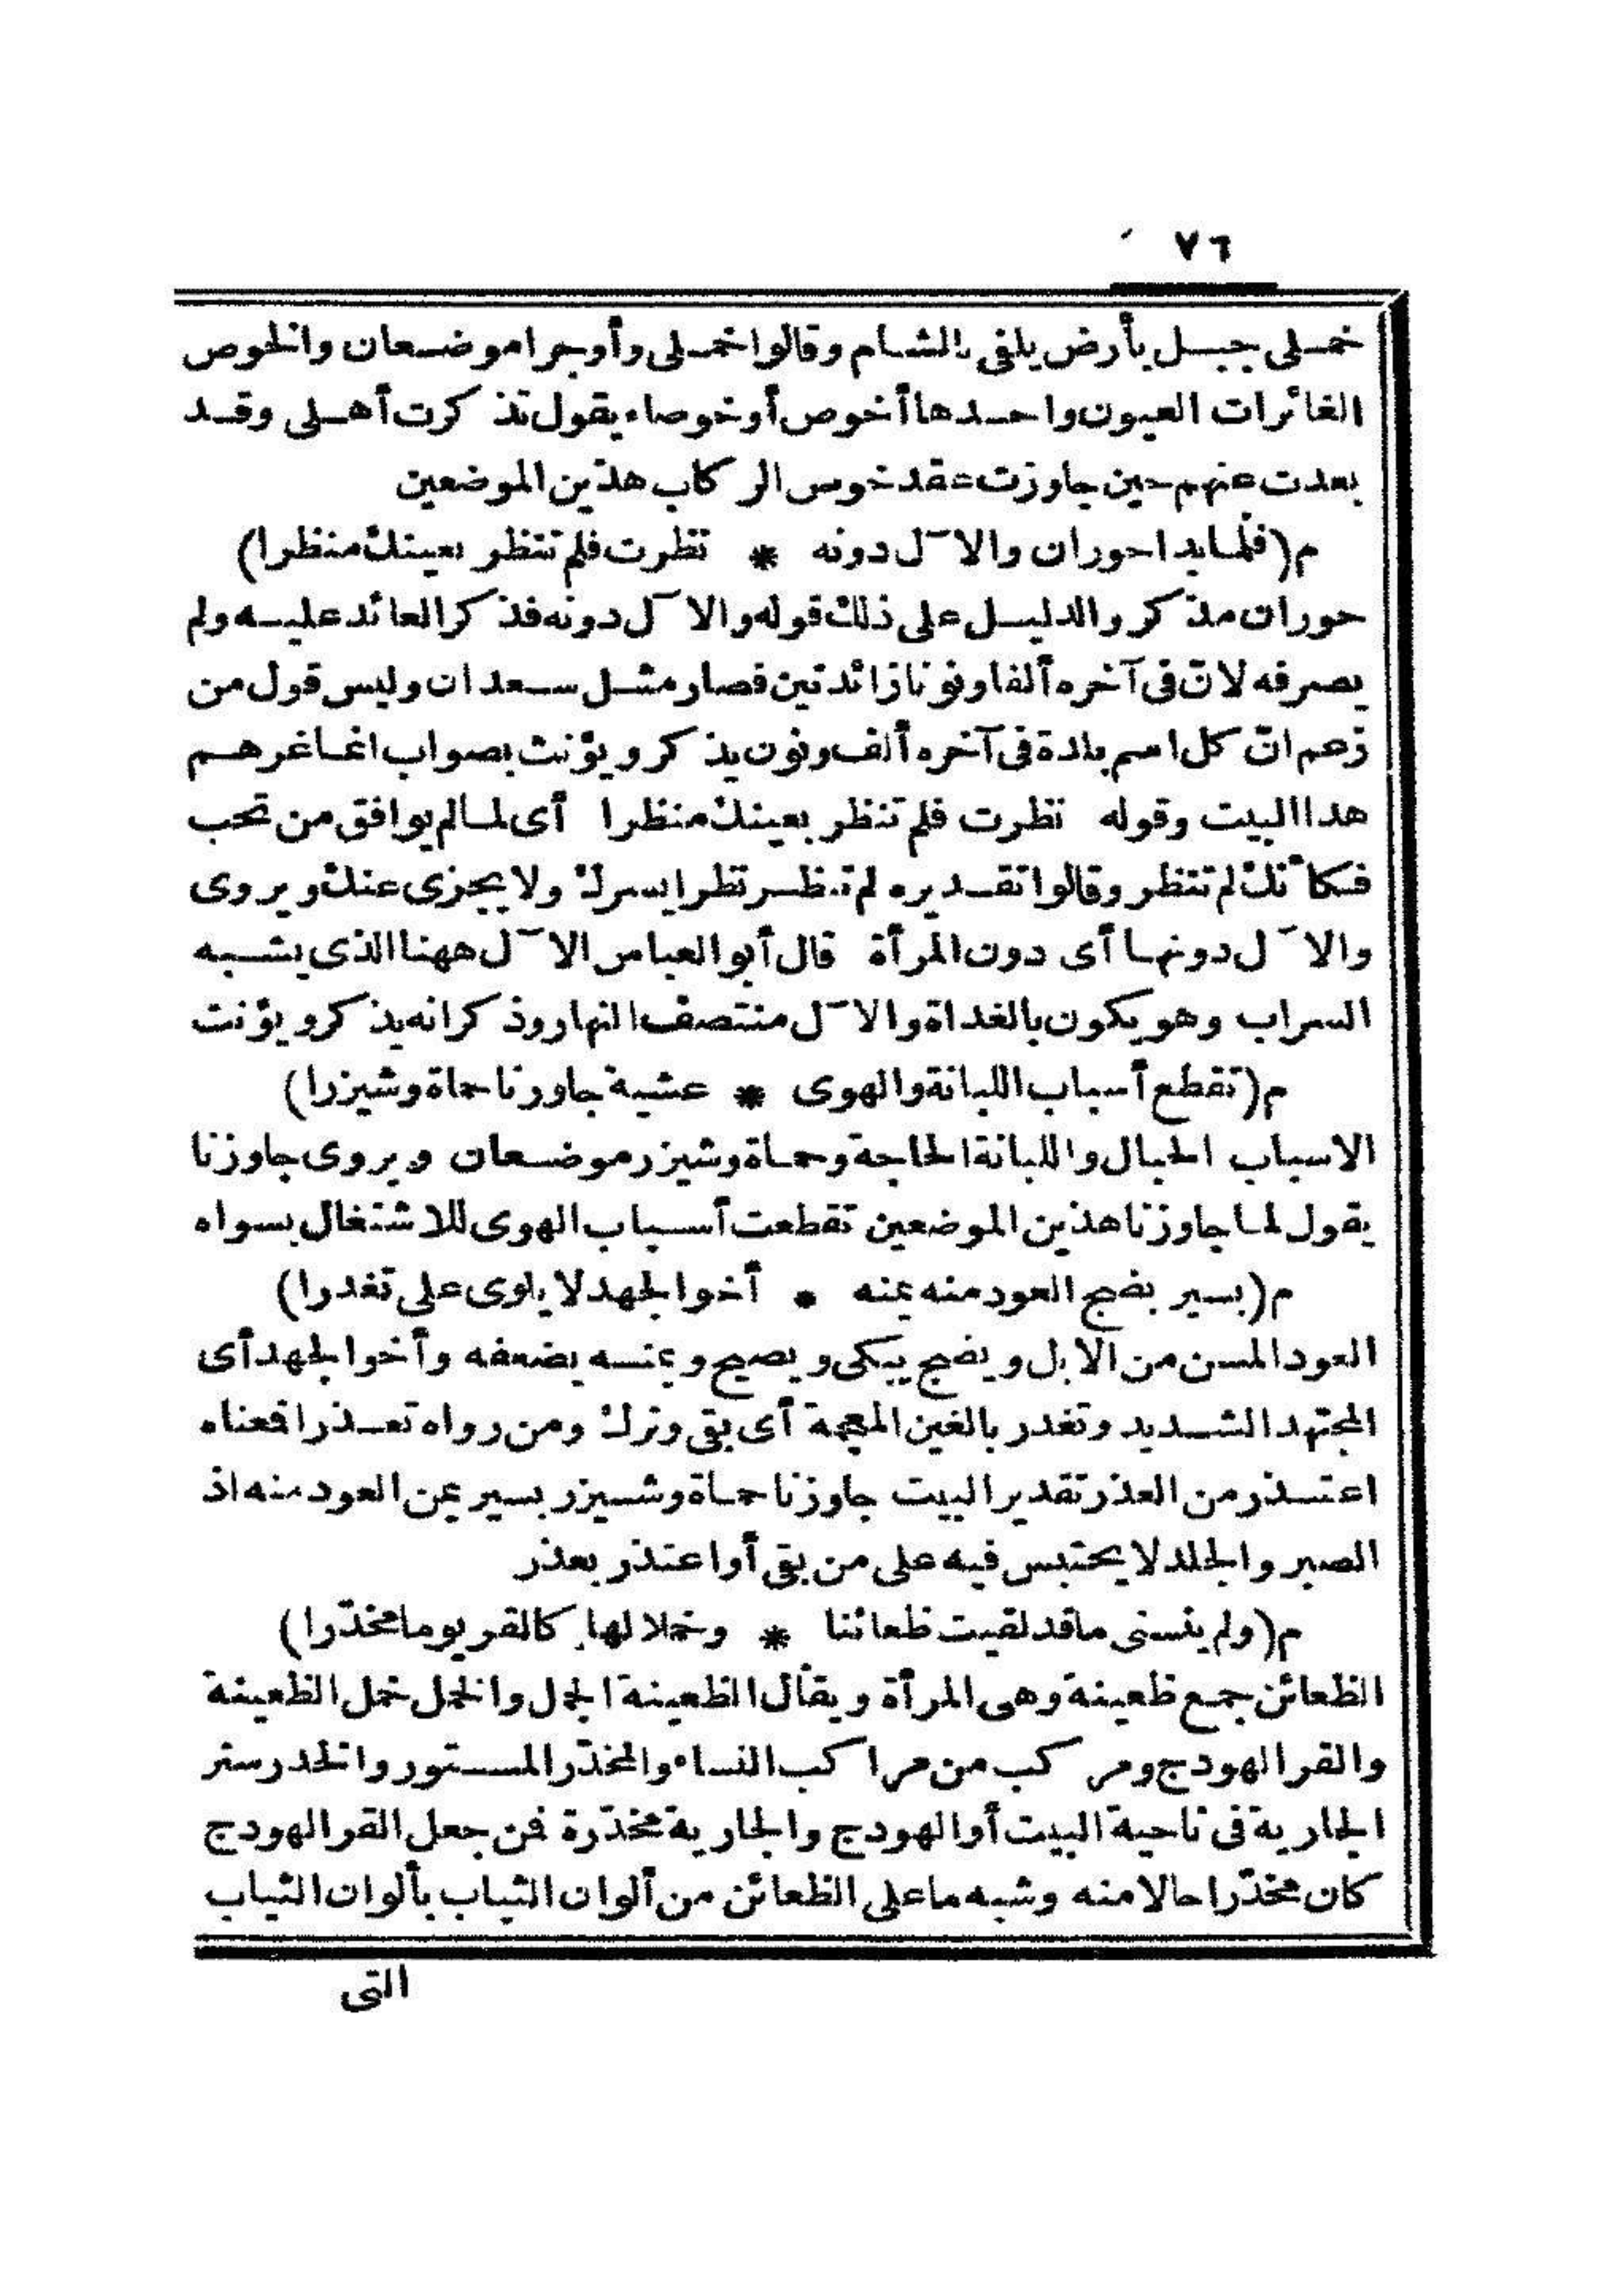 ٧٦
خملى جبل بأرض بلقى بالشام وقالوا خملى وأوجرا موضعان والخوص
الغائرات العيون واحدها أخوص أو خوصاء يقول تذكرت أهلى وقد
بعدت عنهم حين جاوزت عقد خوص الركاب هذين الموضعين
م (فلما بدا حوران والآل دونه * نظرت فلم تنظر بعينك منظرا)
حوران مذكر والدليل على ذلك قوله والآل دونه فذكر العائد عليه ولم
يصرفه لانّ فى آخره ألفا ونونا زائدتين فصار مثل سعدان وليس قول من
زعم انّ كل اسم بلدة فى آخره ألف ونون يذكر ويؤنث بصواب انما غرهم
هذا البيت وقوله نظرت فلم تنظر بعينك منظرا أى لما لم يوافق من تحب
فكأنك لم تنظر وقالوا تقديره لم تنظر نظرا يسرك ولا يجزى عنك ويروى
والآل دونها أى دون المرأة قال أبو العباس الآل ههنا الذى يشبه
السراب وهو يكون بالغداة والآل منتصف النهار وذكر انه يذكر ويؤنث
م (تقطع أسباب اللبانة والهوى * عشية جاوزنا حماة وشيزرا)
الاسباب الحبال واللبانة الحاجة وحماة وشيزر موضعان ويروى جاوزنا
يقول لما جاوزنا هذين الموضعين تقطعت أسباب الهوى للاشتغال بسواه
م (بسير يضج العود منه يمنه * أخو الجهد لا يلوى على تغدرا)
العود المسن من الابل ويضج يبكى ويصيح ويمنسه يضعفه وأخو الجهد أى
المجتهد الشديد وتغدر بالغين المعجمة أى بقى وترك ومن رواه تعذرا فمعناه
اعتذر من العذر تقدير البيت جاوزنا حماة وشيزر بسير يمن العود منه اذ
الصبر والجلد لا يحتبس فيه على من بقى أو اعتذر بعذر
م (ولم ينسنى ما قد لقيت ظعائنا * وخملا لها كالقر يوما مخدّرا)
الظعائن جمع ظعينة وهى المرأة ويقال الظعينة الجمل والخمل خمل الظعينة
والقر الهودج ومركب من مراكب النساء والمخدّر المستور والخدر ستر
الجارية فى ناحية البيت أو الهودج والجارية مخدّرة فمن جعل القر الهودج
كان مخدّرا حالا منه وشبه ما على الظعائن من ألوان الثياب بألوان الثياب
التى